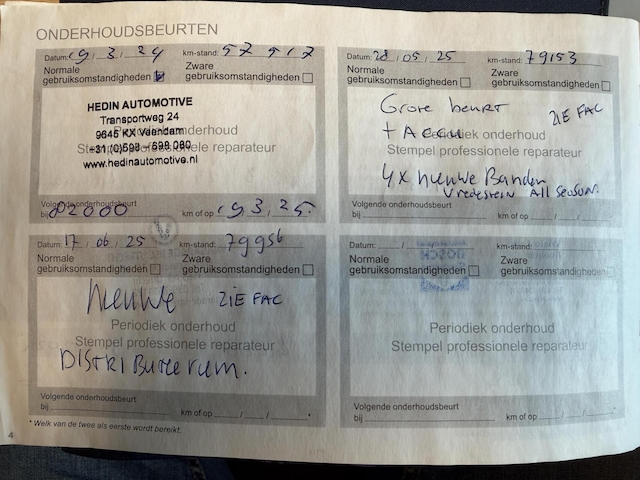 ONDERHOUDSBEURTEN
Datum: 19, 3, 24 km-stand:
Normale gebruiksomstandigheden
Zware gebruiksomstandigheden
HEDIN AUTOMOTIVE
Transportweg 24
9645 KX Veendam
+31 (0)598 - 698 080
www.hedinautomotive.nl
Periodiek onderhoud
Stempel professionele reparateur
Volgende onderhoudsbeurt
bij 82000 km of op 19 3, 25.
Datum: 28, 05, 25 km-stand: 79153
Normale gebruiksomstandigheden
Zware gebruiksomstandigheden
Grote beurt ZIE FAC
+ Accu
Periodiek onderhoud
Stempel professionele reparateur
4x nieuwe Banden
Vredestein All Season.
Volgende onderhoudsbeurt
bij km of op / /
Datum: 17, 06, 25 km-stand: 79956
Normale gebruiksomstandigheden
Zware gebruiksomstandigheden
Nieuwe ZIE FAC
Periodiek onderhoud
Stempel professionele reparateur
DISTRIButieriem.
Volgende onderhoudsbeurt
bij km of op / / *
Datum: / / km-stand:
Normale gebruiksomstandigheden
Zware gebruiksomstandigheden
Periodiek onderhoud
Stempel professionele reparateur
Volgende onderhoudsbeurt
bij km of op / / *
* Welk van de twee als eerste wordt bereikt.
4